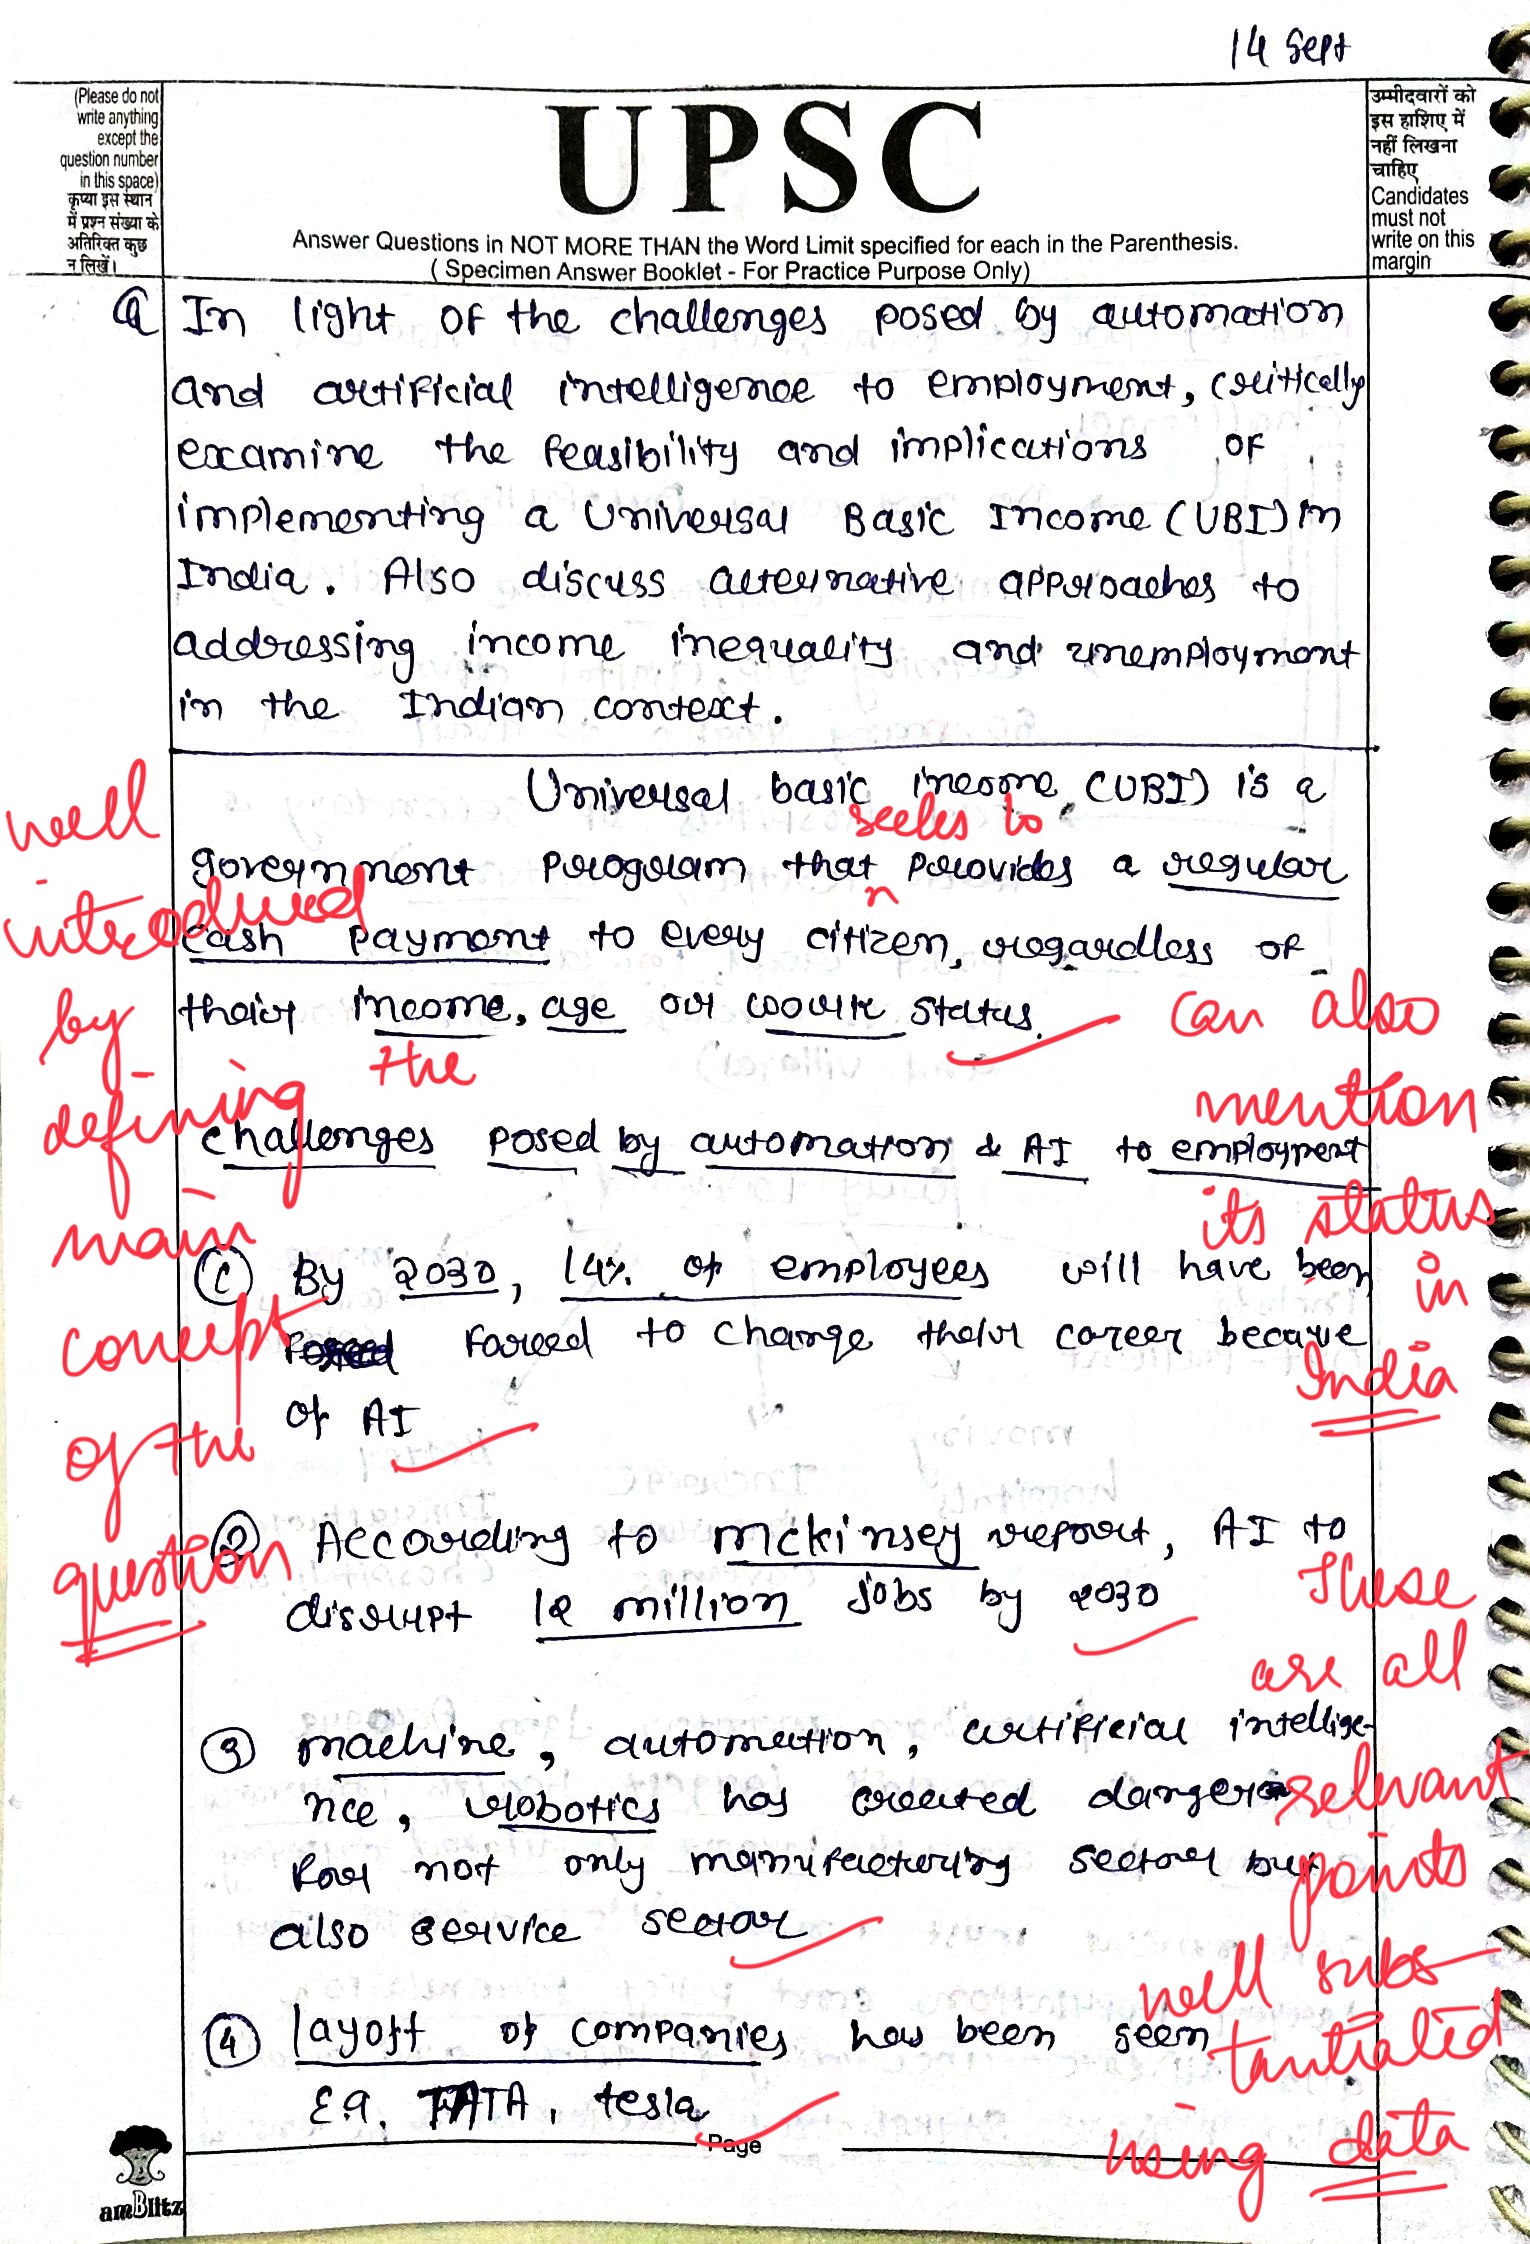 14 Sept
(Please do not
write anything
except the
question number
in this space)
कृप्या इस स्थान
में प्रश्न संख्या के
अतिरिक्त कुछ
न लिखें।
UPSC
Answer Questions in NOT MORE THAN the Word Limit specified for each in the Parenthesis.
( Specimen Answer Booklet - For Practice Purpose Only)
उम्मीदवारों को
इस हाशिए में
नहीं लिखना
चाहिए
Candidates
must not
write on this
margin
Q In light of the challenges posed by automation
and artificial intelligence to employment, critically
examine the feasibility and implications of
implementing a Universal Basic Income (UBI) in
India. Also discuss alternative approaches to
addressing income inequality and unemployment
in the Indian context.
Universal basic income (UBI) is a
seeks to
government program that provides a regular
cash payment to every citizen, regardless of
their income, age or work status.
well
introduced
by
defining the
main
concept
of the
question
can also
mention
its status
in
India
Challenges posed by automation & AI to employment
① By 2030, 14% of employees will have been
forced to change their career because
of AI
② According to mckinsey report, AI to
disrupt 12 million jobs by 2030
③ machine, automation, artificial intellige-
nce, robotics has created danger
for not only manufacturing sector but
also service sector
④ layoff of companies has been seen
E.g. TATA, tesla
These
are all
relevant
points
well subs-
tantiated
using data
Page
amBlitz